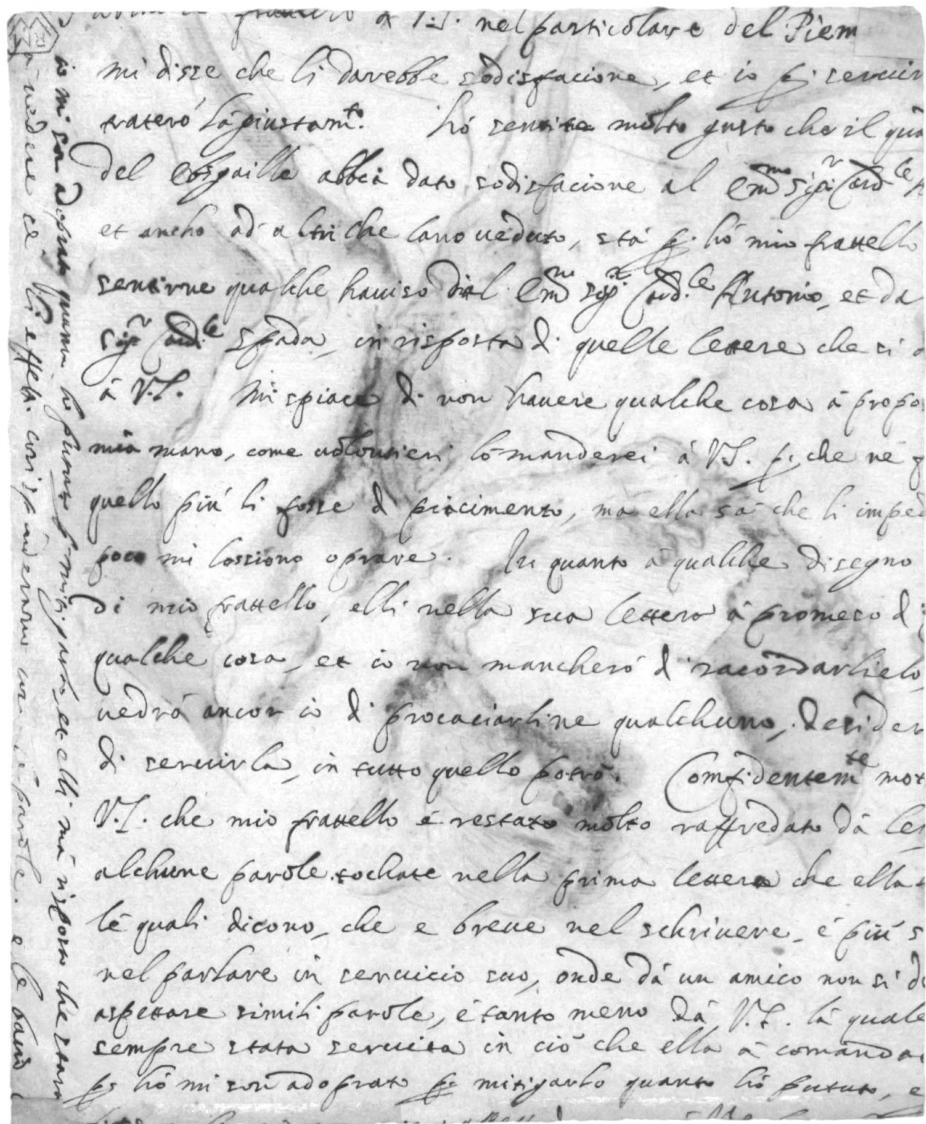 nel particolare del Piem
mi disse che li darebbe sodisfacione, et io p. servir
trateró la giustam.to hó sentito molto gusto che il qua
del abbia dato sodisfacione al Em.mo Sig.r Card.le
et ancho ad altri che lano veduto, stá p. hó mio frattello
sentirne qualche haviso dal Em.mo Sig.r Card.le Antonio, et da
Sig.r Card.le Spada, in risposta di quelle lettere che si
á V.S. Mi spiace di non havere qualche cosa á propo
mia mano, come volontieri lo manderei á V.S. p. che ne
quello piú li fosse di piacimento, má ella sá che li imped
poco mi lossiono oprare. In quanto á qualche disegno
di mio frattello, elli nella sua lettera á promeso di
qualche cosa, et io non mancheró di racordarlielo,
vedró ancor io di procaciarline qualchuno, desider
di servirla, in tutto quello potró. Comfidentem.te mot
V.S. che mio frattello é restato molto raffredato dá le
alchune parole tochate nella prima lettera che ella
lé quali dicono, che e breve nel schrivere, é piú s
nel parlare in servicio suo, onde dá un amico non si d
aspettare simili parole, é tanto meno dá V.S. lá quale
sempre stata servita in ció che ella á comanda
p. hó mi son adoprato p. mitigarlo quanto hó pututo, e
io mi son adoprato quanto ho p. mitigarlo, et elli má risposto che stará
á vedere ce li effetti corispoderano con le parole. e le bacio